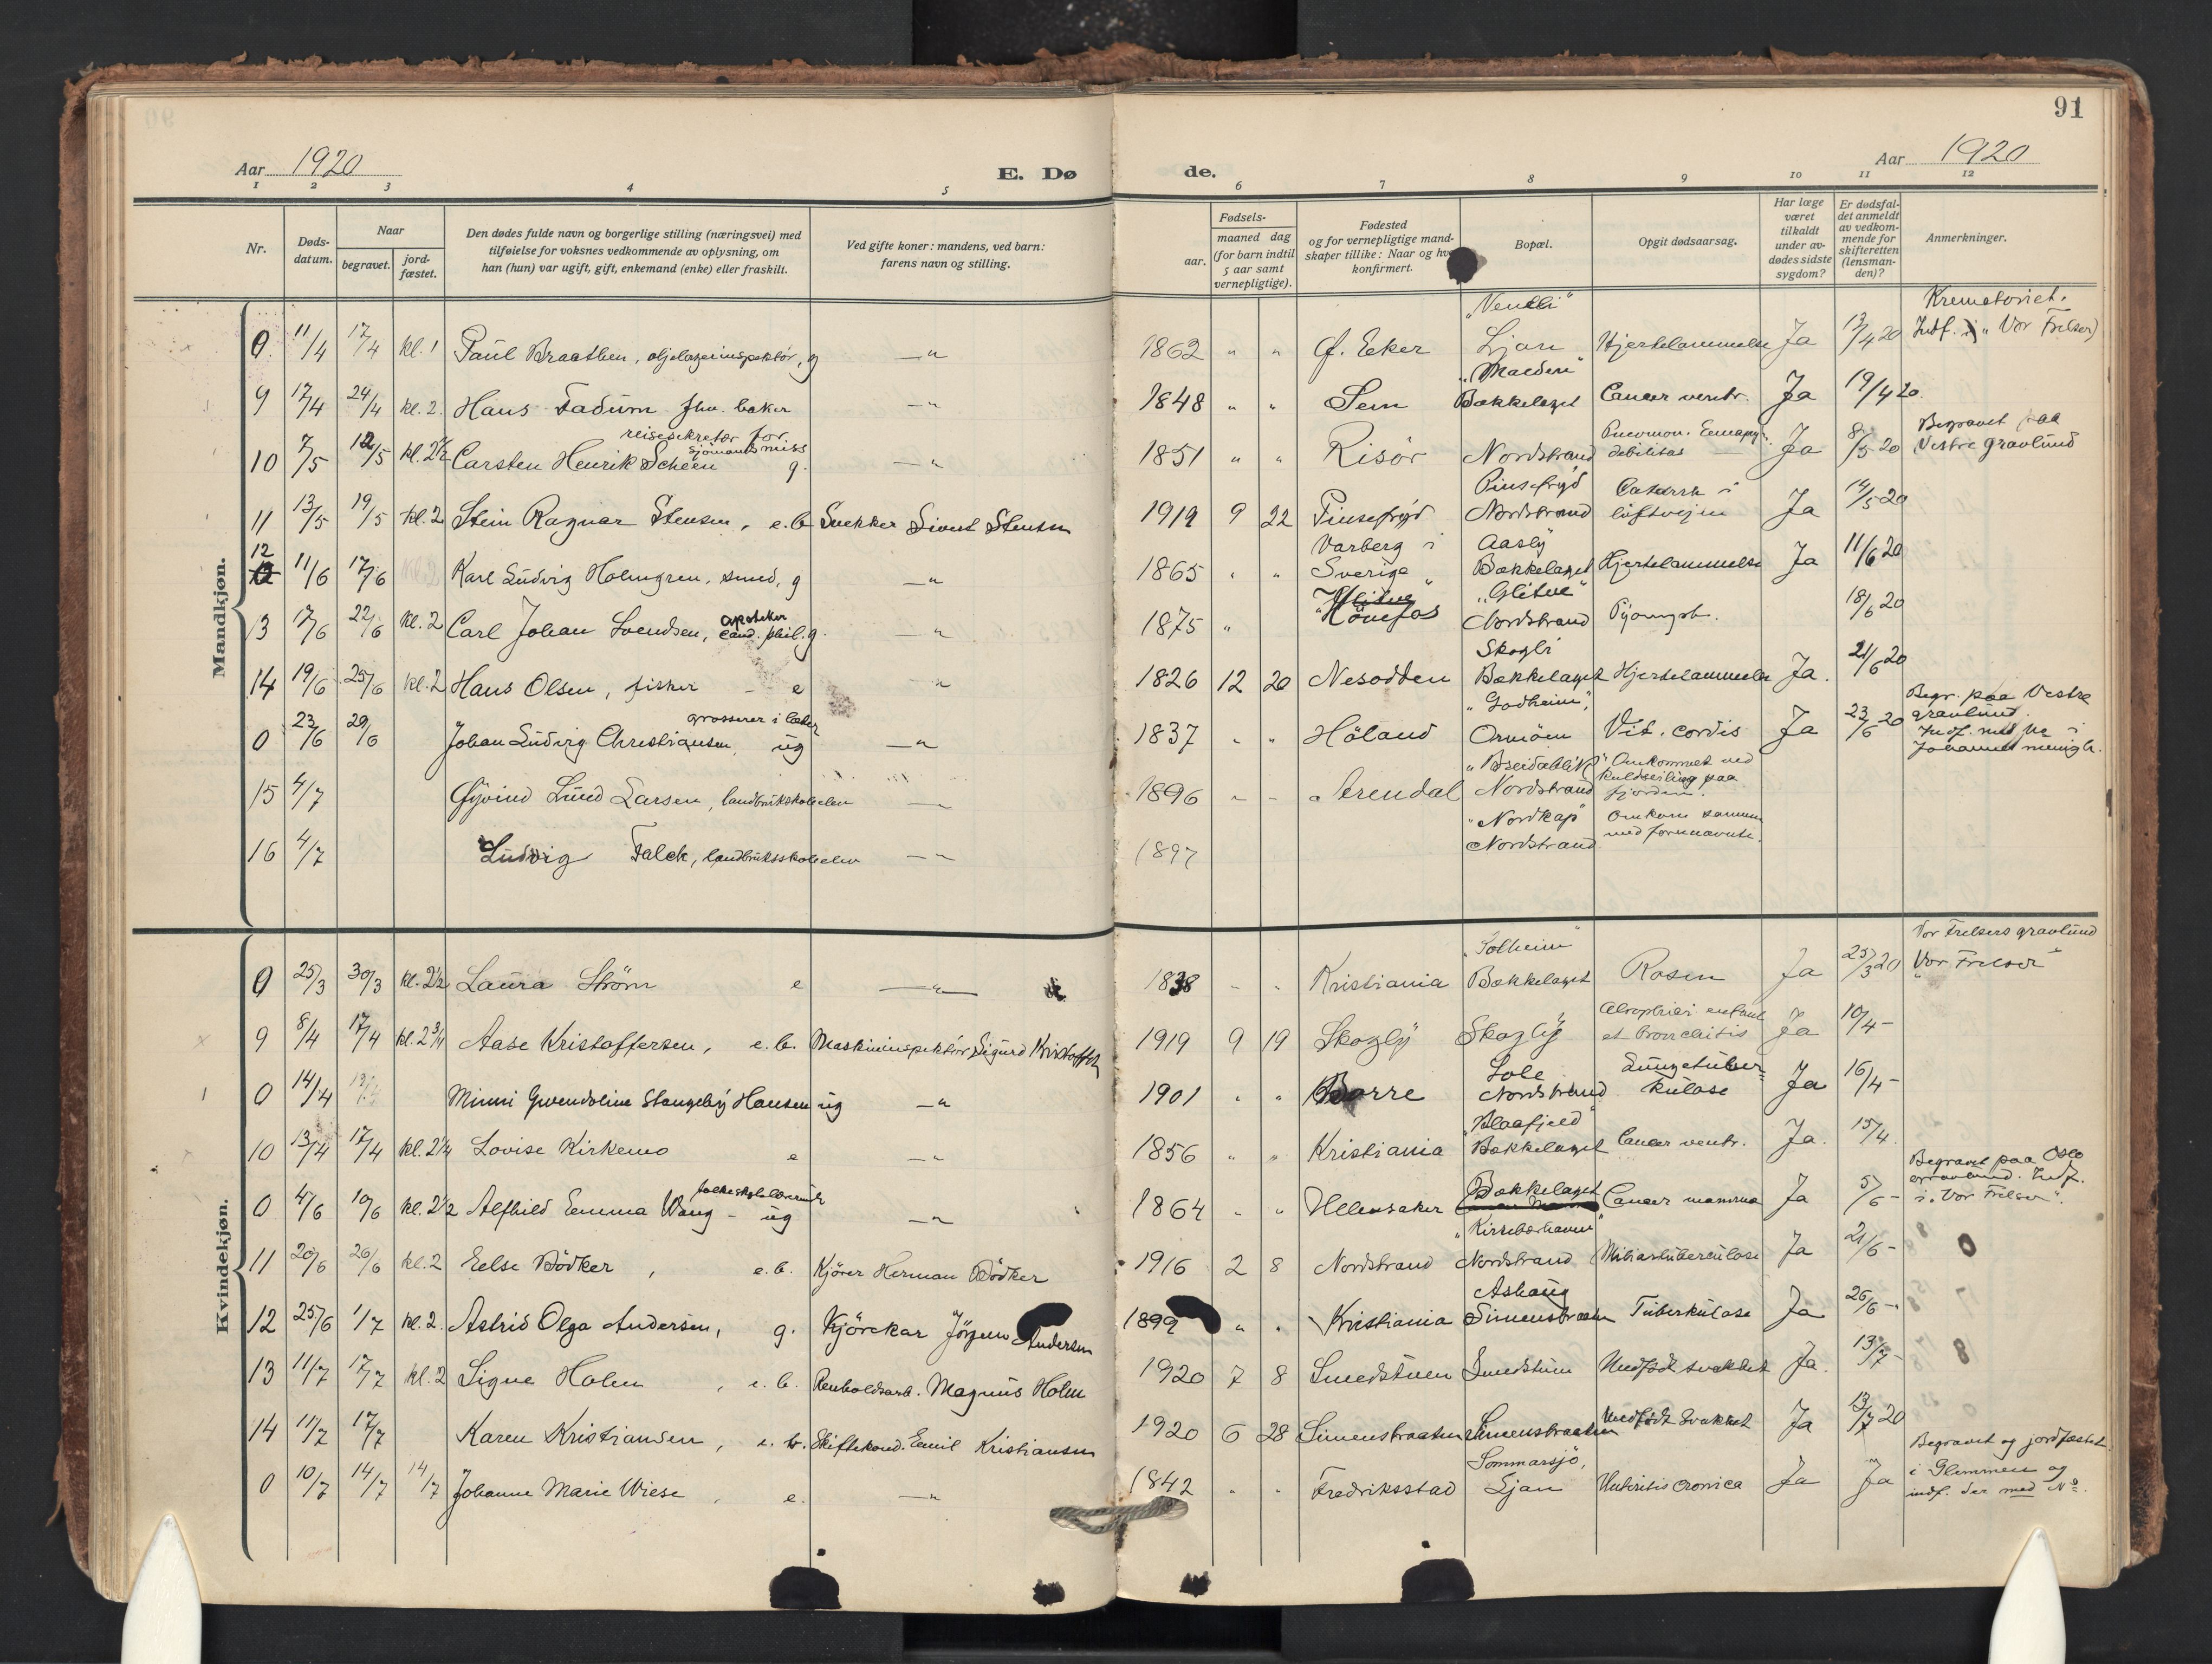 91
Aar 1920 E. Døde. Aar 1920
1 2 3 4 5 6 7 8 9 10 11 12
Nr.
Døds-
datum.
Naar
begravet.
jord-
fæstet.
Den dødes fulde navn og borgerlige stilling (næringsvei) med
tilføielse for voksnes vedkommende av oplysning, om
han (hun) var ugift, gift, enkemand (enke) eller fraskilt.
Ved gifte koner: mandens, ved barn:
farens navn og stilling.
Fødsels-
aar.
maaned dag
(for barn indtil
5 aar samt
vernepligtige).
Fødested
og for vernepligtige mand-
skaper tillike: Naar og hv
konfirmert.
Bopæl.
Opgit dødsaarsag.
Har læge
været
tilkaldt
under av-
dødes sidste
sygdom?
Er dødsfal-
det anmeldt
av vedkom-
mende for
skifteretten
(lensman-
den)?
Anmerkninger.
Mandkjøn.
0 11/4 17/4 kl. 1 Paul Braathen, oljelagerinspektør, g —"— 1862 " " Ø. Eeker "Venelli" Ljan Hjertelammelse Ja 13/4 20 Krematoriet. Indf. i "Vor Frelser)
9 17/4 24/4 kl. 2. Hans Fadum fhv. baker —"— 1848 " " Sem Bækkelaget Cancer ventr. Ja 19/4 20.
10 7/5 12/5 kl. 2½ Carsten Henrik Scheen reisesekretær for sjömandsmiss g. —"— 1851 " " Risör Nordstrand debilitas Ja 8/5 20 Begravet paa Vestre gravlund
11 13/5 19/5 kl. 2 Stein Ragnar Stensen, e.b Snekker Sivert Stensen 1919 9 22 Pinsefryd Pinsefryd Nordstrand Catarrh i luftvejen Ja 14/5 20
12 11/6 17/6 Karl Ludvig Holmgren, smed, g —"— 1865 " " Varberg i Sverige Aasly Bækkelaget Hjertelammelse Ja 11/6 20
13 17/6 22/6 kl. 2 Carl Johan Svendsen, apoteker cand. phil. g. —"— 1875 " Hönefos "Glitne" Nordstrand 18/6 20
14 19/6 25/6 kl. 2 Hans Olsen, fisker - e —"— 1826 12 20 Nesodden Skogli Bækkelaget Hjertelammelse Ja. 21/6 20
0 23/6 29/6 Johan Ludvig Christiansen, grosserer i læder ug —"— 1837 " " Höland "Godheim", Ormöen Vit. cordis Ja 23/6 20 Begr. paa Vestre gravlund. Indf. med Nr i Johannes menigh.
15 4/7 Øyvind Lund Larsen, landbrukskoleelev —"— 1896 - - Arendal "Breidablik" Nordstrand Omkommet ved kuldseiling paa fjorden.
16 4/7 Ludvig Falck, landbruksskoleelev —"— 1897 "Nordkap" Nordstrand Omkom sammen med fornævnte.
Kvindekjøn.
0 25/3 30/3 kl. 2½ Laura Strøm e —"— 1838 - " Kristiania "Solheim" Bækkelaget Rosen Ja 25/3 20 Vor Frelsers gravlund "Vor Frelser"
9 8/4 17/4 kl. 2¾ Aase Kristoffersen, e.b. Maskininspektör Sigurd Kristoffersen 1919 9 19 Skogly Skogly et bronchitis Ja 10/4 -
0 14/4 Minni Gwendoline Stangeby Hansen ug —"— 1901 " " Borre Sole Nordstrand Lungetuber= kulose Ja 16/4 -
10 13/4 17/4 kl. 2¼ Lovise Kirkemo e —"— 1856 " " Kristiania "Blaafjeld" Bækkelaget Cancer ventr. Ja. 15/4.
0 4/6 10/6 kl. 2½ Alfhild Emma Wang - folkeskolelærerinde ug —"— 1864 " " Ullensaker Bækkelaget Cancer mamma Ja 5/6 - Begravet paa Oslo gravlund. Indf. i "Vor Frelser".
11 20/6 26/6 kl. 2 Else Bödker, e.b. Kjörer Herman Bödker 1916 2 8 Nordstrand "Kirsebærhaven" Nordstrand Miliartuberculose Ja 21/6 - 0
12 25/6 1/7 kl. 2. Astrid Olga Andersen, g. Kjörekar Jörgen Andersen 1899 " " Kristiania Ashaug Simensbraaten Tuberkulose Ja 26/6 -
13 11/7 17/7 kl. 2 Signe Holm, e.b. Renholdsarb. Magnus Holm 1920 7 8 Smedstuen Smedstuen Medfødt svakhet Ja. 13/7 -
14 11/7 17/7 Karen Kristiansen, e.b. Skiftekond. Emil Kristiansen 1920 6 28 Simensbraaten Simensbraaten Medfødt Svakhet Ja 13/7 20
0 10/7 14/7 14/7 Johanne Marie Wiese, e. —"— 1842 " " Fredriksstad Sommarsjö, Ljan cronica Ja Ja Begravet og jordfæstet i Glemmen og indf. der med No.